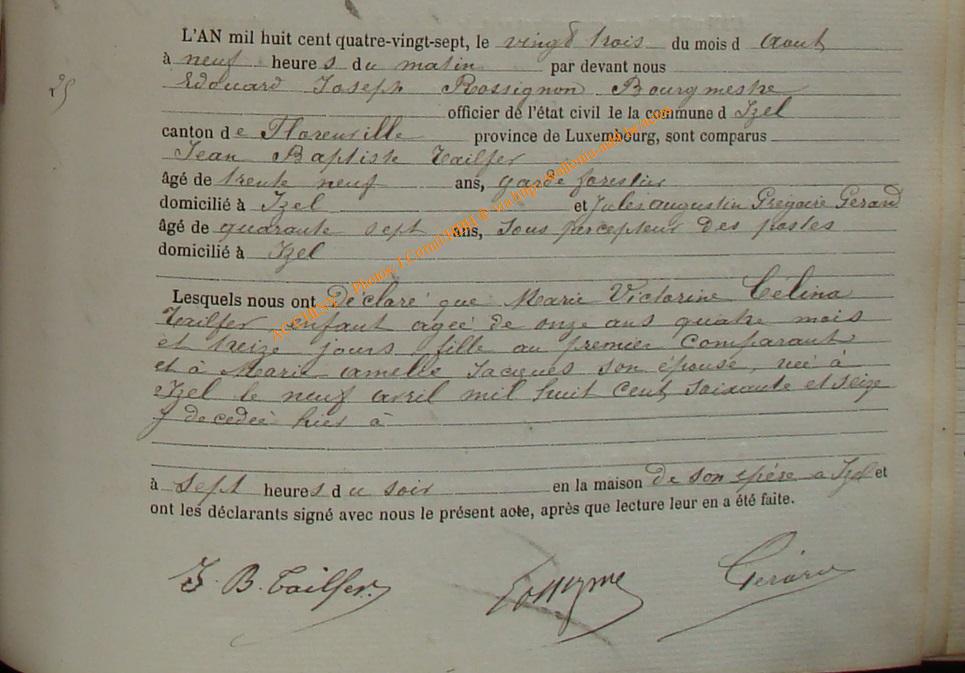 25
L'AN mil huit cent quatre-vingt-sept, le vingt trois du mois d août
à neuf heures du matin par devant nous
Edouard Joseph Rossignon Bourgmestre
officier de l'état civil de la commune d Izel
canton de Florenville province de Luxembourg, sont comparus
Jean Baptiste Tailfer
âgé de trente neuf ans, garde forestier
domicilié à Izel et Jules Augustin Grégoire Gerard
âgé de quarante sept ans, Sous percepteur des postes
domicilié à Izel
Lesquels nous ont déclaré que Marie Victorine Célina
Tailfer, enfant agée de onze ans quatre mois
et treize jours fille au premier Comparant
et à Marie Amelie Jacques son épouse, née à
Izel le neuf avril mil huit cent soixante et seize
y decedée hier à
à sept heures du soir en la maison de son père a Izel et
ont les déclarants signé avec nous le présent acte, après que lecture leur en a été faite.
J. B. Tailfer
Gerard